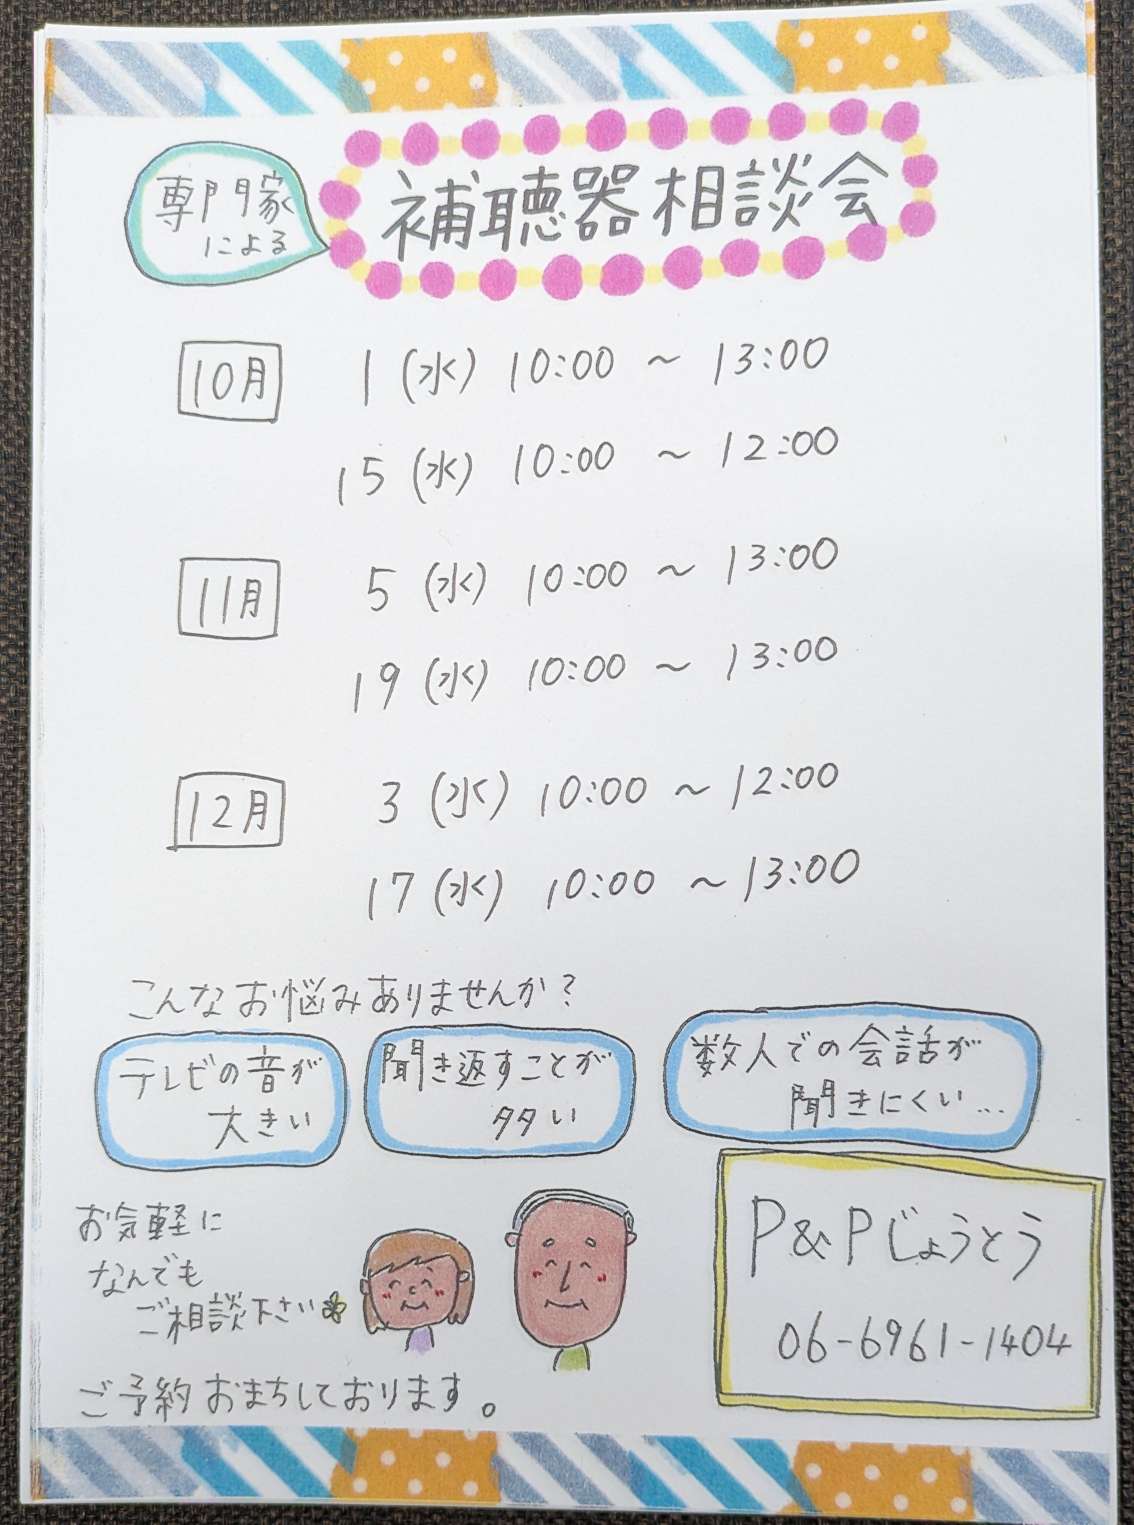 専門家
による
補聴器相談会
10月 1(水) 10:00 ~ 13:00
15(水) 10:00 ~ 12:00
11月 5(水) 10:00 ~ 13:00
19(水) 10:00 ~ 13:00
12月 3(水) 10:00 ~ 12:00
17(水) 10:00 ~ 13:00
こんなお悩みありませんか?
テレビの音が
大きい
聞き返すことが
多い
数人での会話が
聞きにくい...
お気軽に
なんでも
ご相談下さい
ご予約おまちしております。
P&Pじょうとう
06-6961-1404